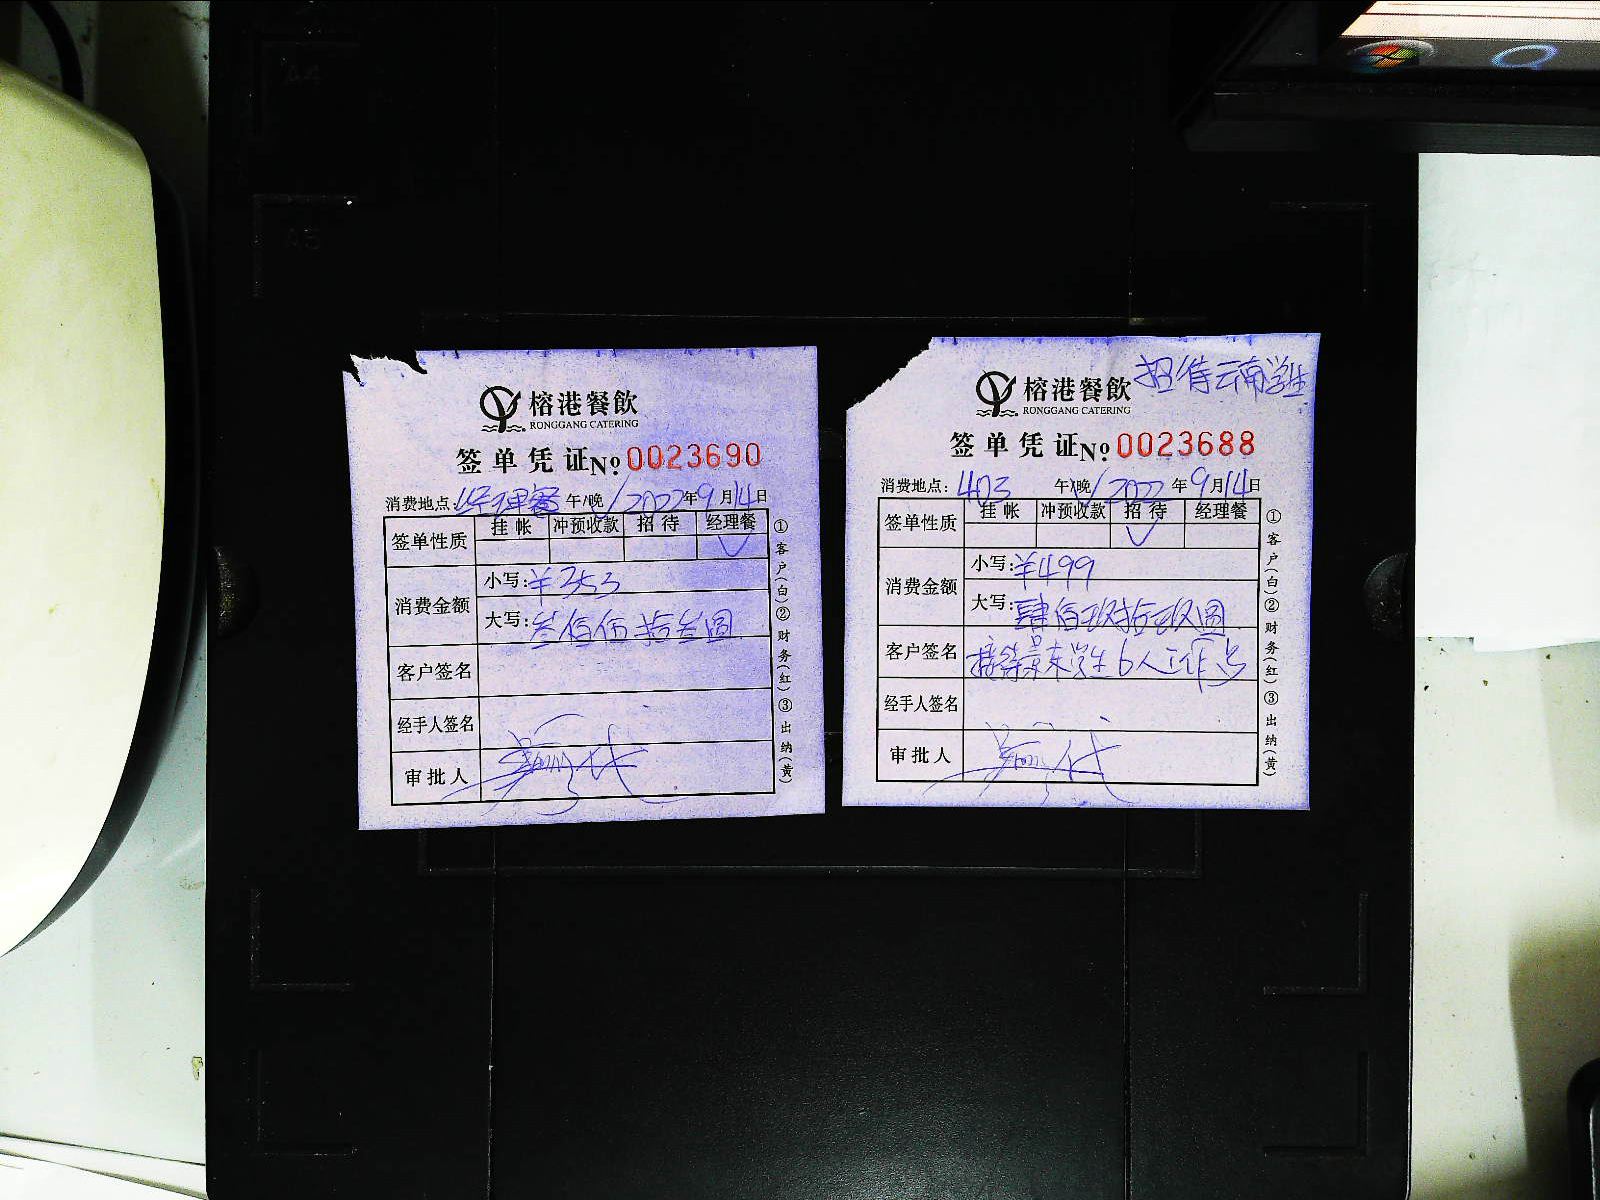 A4
A5
榕港餐飲
RONGGANG CATERING
签单凭证 №0023690
消费地点:经理餐 午/晚 2022年9月14日
签单性质 挂帐 冲预收款 招待 经理餐
消费金额 小写:¥353
大写:叁佰伍拾叁圆
客户签名
经手人签名
审批人
①客户(白)②财务(红)③出纳(黄)
招待云南学生
榕港餐飲
RONGGANG CATERING
签单凭证 №0023688
消费地点:403 午/晚 2022年9月14日
签单性质 挂帐 冲预收款 招待 经理餐
消费金额 小写:¥499
大写:肆佰玖拾玖圆
客户签名 接待景东学生6人工作
经手人签名
审批人
①客户(白)②财务(红)③出纳(黄)